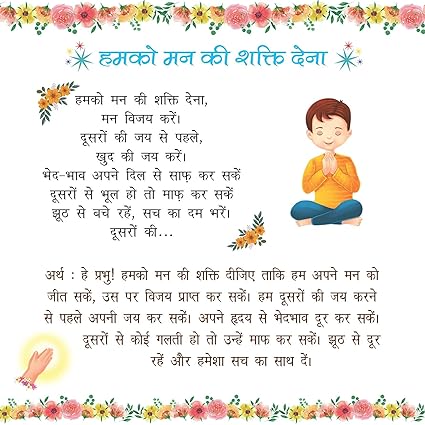 हमको मन की शक्ति देना
हमको मन की शक्ति देना,
मन विजय करें।
दूसरों की जय से पहले,
खुद की जय करें।
भेद-भाव अपने दिल से साफ़ कर सकें
दूसरों से भूल हो तो माफ़ कर सकें
झूठ से बचे रहें, सच का दम भरें।
दूसरों की...
अर्थ : हे प्रभु! हमको मन की शक्ति दीजिए ताकि हम अपने मन को
जीत सकें, उस पर विजय प्राप्त कर सकें। हम दूसरों की जय करने
से पहले अपनी जय कर सकें। अपने हृदय से भेदभाव दूर कर सकें।
दूसरों से कोई गलती हो तो उन्हें माफ कर सकें। झूठ से दूर
रहें और हमेशा सच का साथ दें।